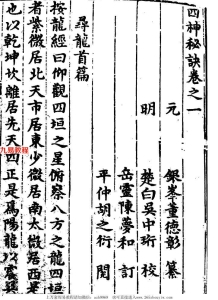 四神秘訣卷之一
元　銀峯董德彰　纂
明　楚白吳中珩　校
岳靈陳夢和　訂
平仲胡之衍　閱
尋龍首篇
按龍經曰仰觀四垣之星俯察八方之龍四垣
者紫微居北天市居東少微居南太微居西是
也以乾坤坎離居先天四正是爲陽龍以震巽